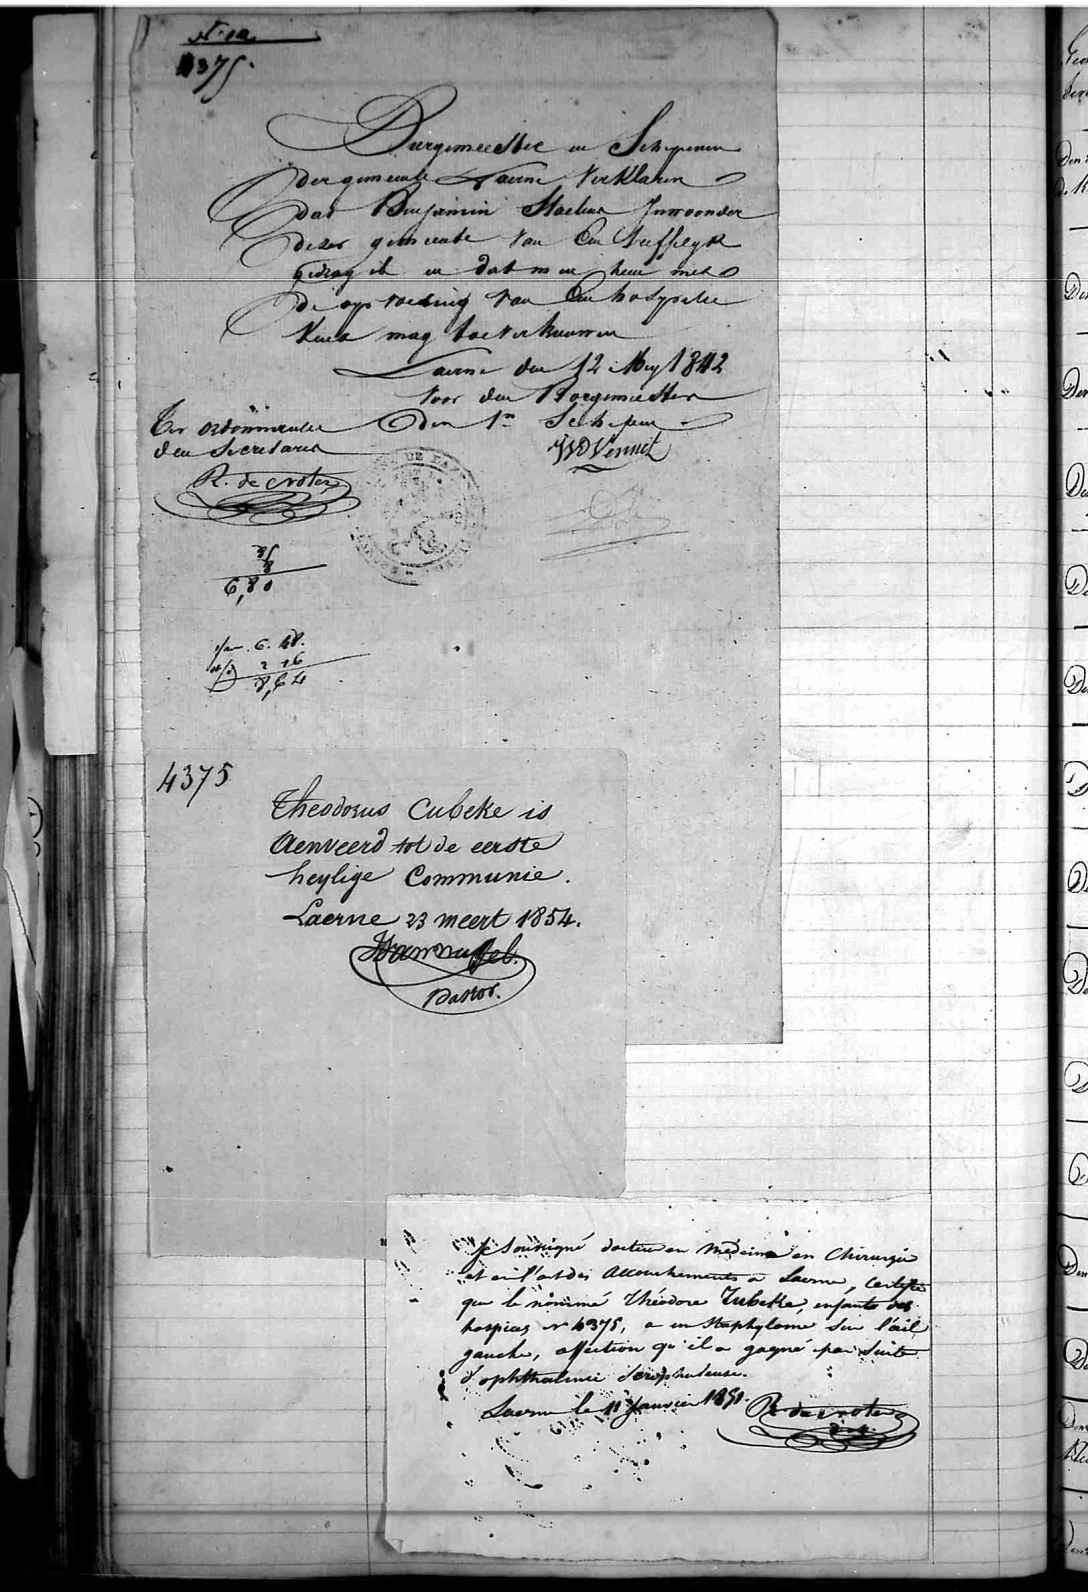 4375.
Burgemeester en Schepenen
der gemeente Laerne Verklaren
dat Benjamin Staelens Inwoonder
dezer gemeente van Een Treffelyk
gedrag is en dat men hem met
de opvoeding van Een hospitie
Kind mag toevertrouwen
Laerne den 12 Mey 1842
Voor den Borgemeester
Ter ordonnantie
den 1en Schepen
den Secretaris
R. de
6,80
6.48.
2 16
8,64
4375
Theodorus Cubeke is
Aenveerd tot de eerste
heylige Communie.
Laerne 23 meert 1854.
Pastor.
Je soussigné docteur en Médecine en Chirurgie
et en l'art des Accouchements à Laerne, Certifie
que le nommé Théodore Cubeke, enfants des
hospices No 4375, a un Staphylome sur l'œil
gauche, affection qu'il a gagné par suite
d'ophthalmie Scrophuleuse.
Laerne le 11 Janvier 1851.
R. de